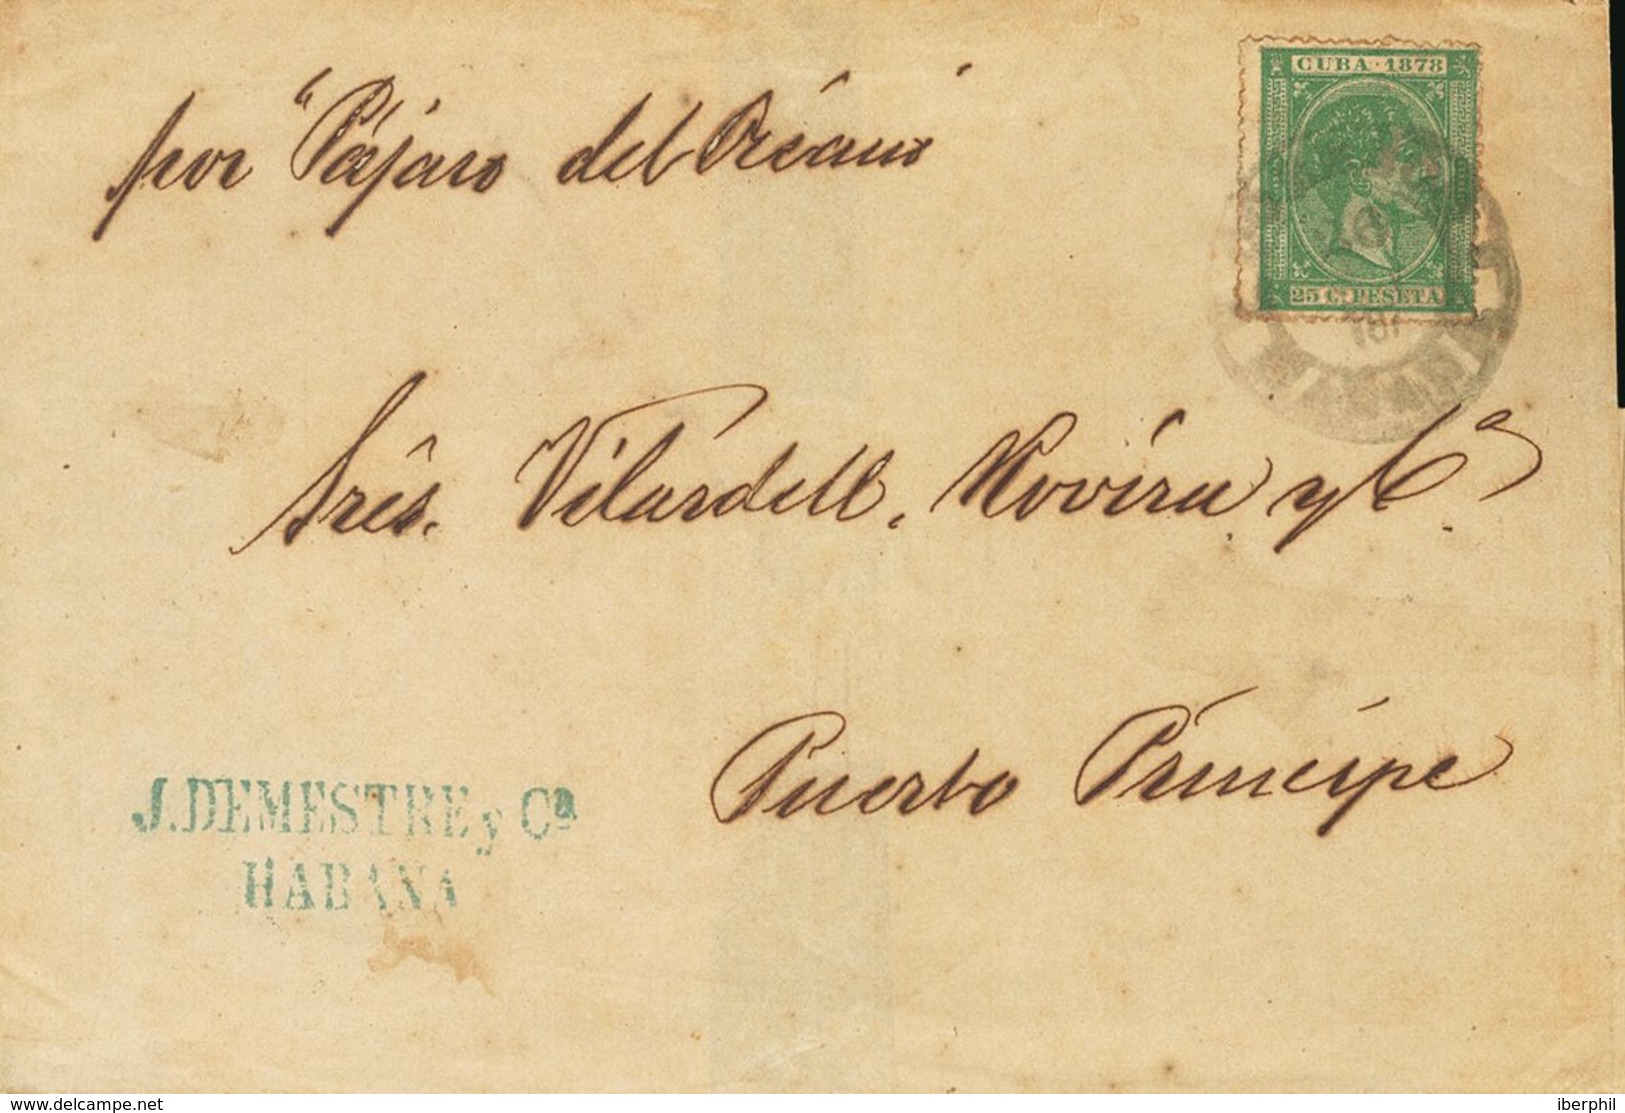 por "Pájaro del Océano"
CUBA · 1878
25 Cs PESETA
187
HABANA
Sres. Vilardell, Rovira y Cª
Puerto Príncipe
J. DEMESTRE y Cª
HABANA
www.delcampe.net
iberphil